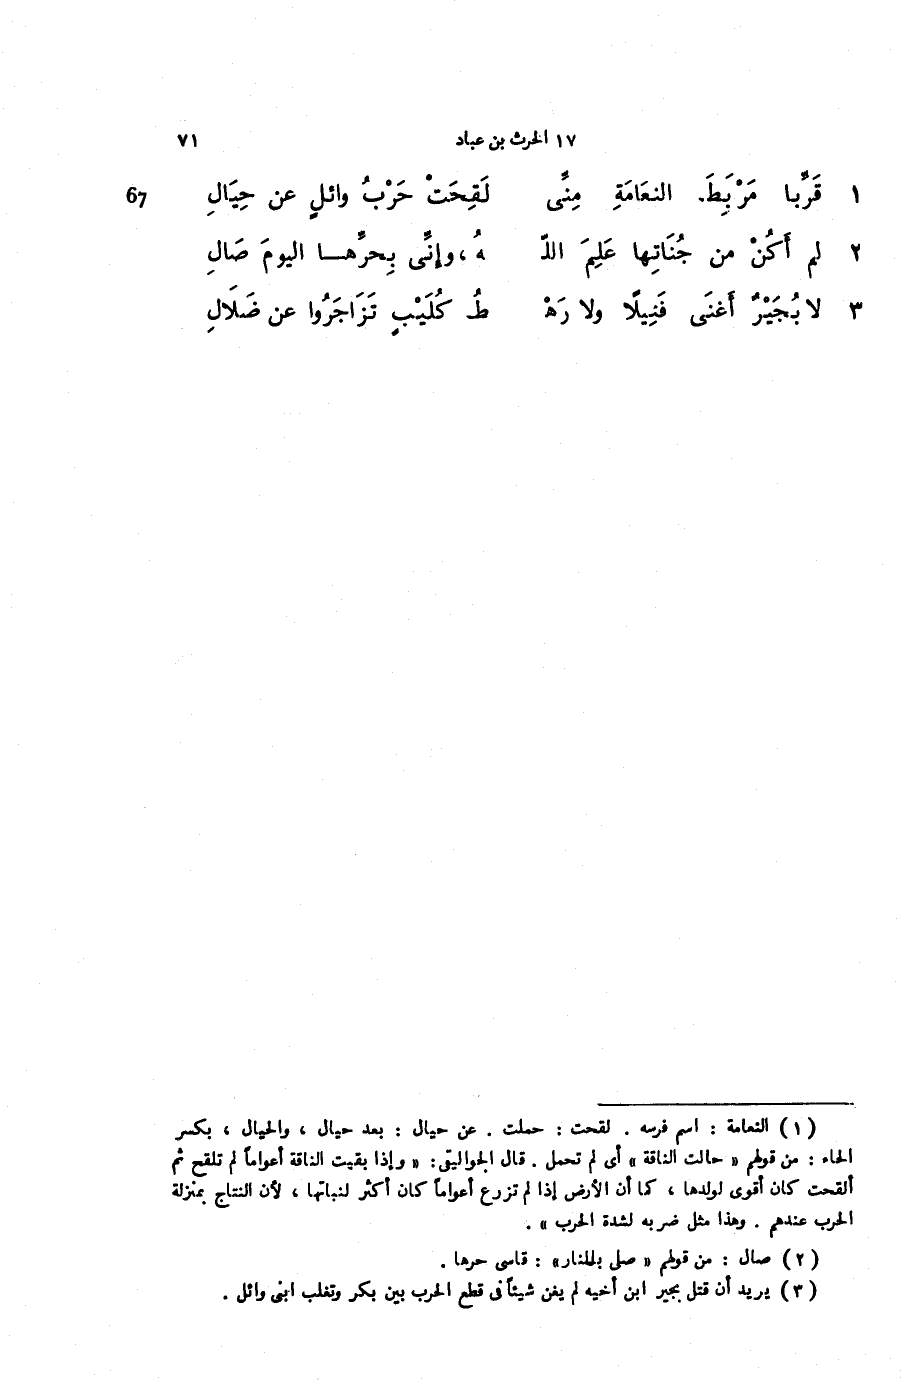 ١٧ الحرث بن عباد ٧١
١ قَرِّبا مَرْبِطَ النعَامَةِ مِنِّى لَقِحَتْ حَرْبُ وائلٍ عن حِيَالِ 67
٢ لم أَكُنْ من جُنَاتِها عَلِمَ اللّ هُ ، وإنِّى بِحرِّهــا اليومَ صَالِ
٣ لا بُجَيْرٌ أَغنَى فَتِيلًا ولا رَهْ طُ كُلَيْبٍ تَزَاجَرُوا عن ضَلَالِ
(١) النعامة : اسم فرسه . لقحت : حملت . عن حيال : بعد حيال ، والحيال ، بكسر
الحاء : من قولهم « حالت الناقة » أى لم تحمل . قال الجواليقى : « وإذا بقيت الناقة أعواماً لم تلقح ثم
ألقحت كان أقوى لولدها ، كما أن الأرض إذا لم تزرع أعواماً كان أكثر لنباتها ، لأن النتاج بمنزلة
الحرب عندهم . وهذا مثل ضربه لشدة الحرب » .
(٢) صال : من قولهم « صلى بالنار» : قاسى حرها .
(٣) يريد أن قتل بجير ابن أخيه لم يغن شيئاً فى قطع الحرب بين بكر وتغلب ابنى وائل .